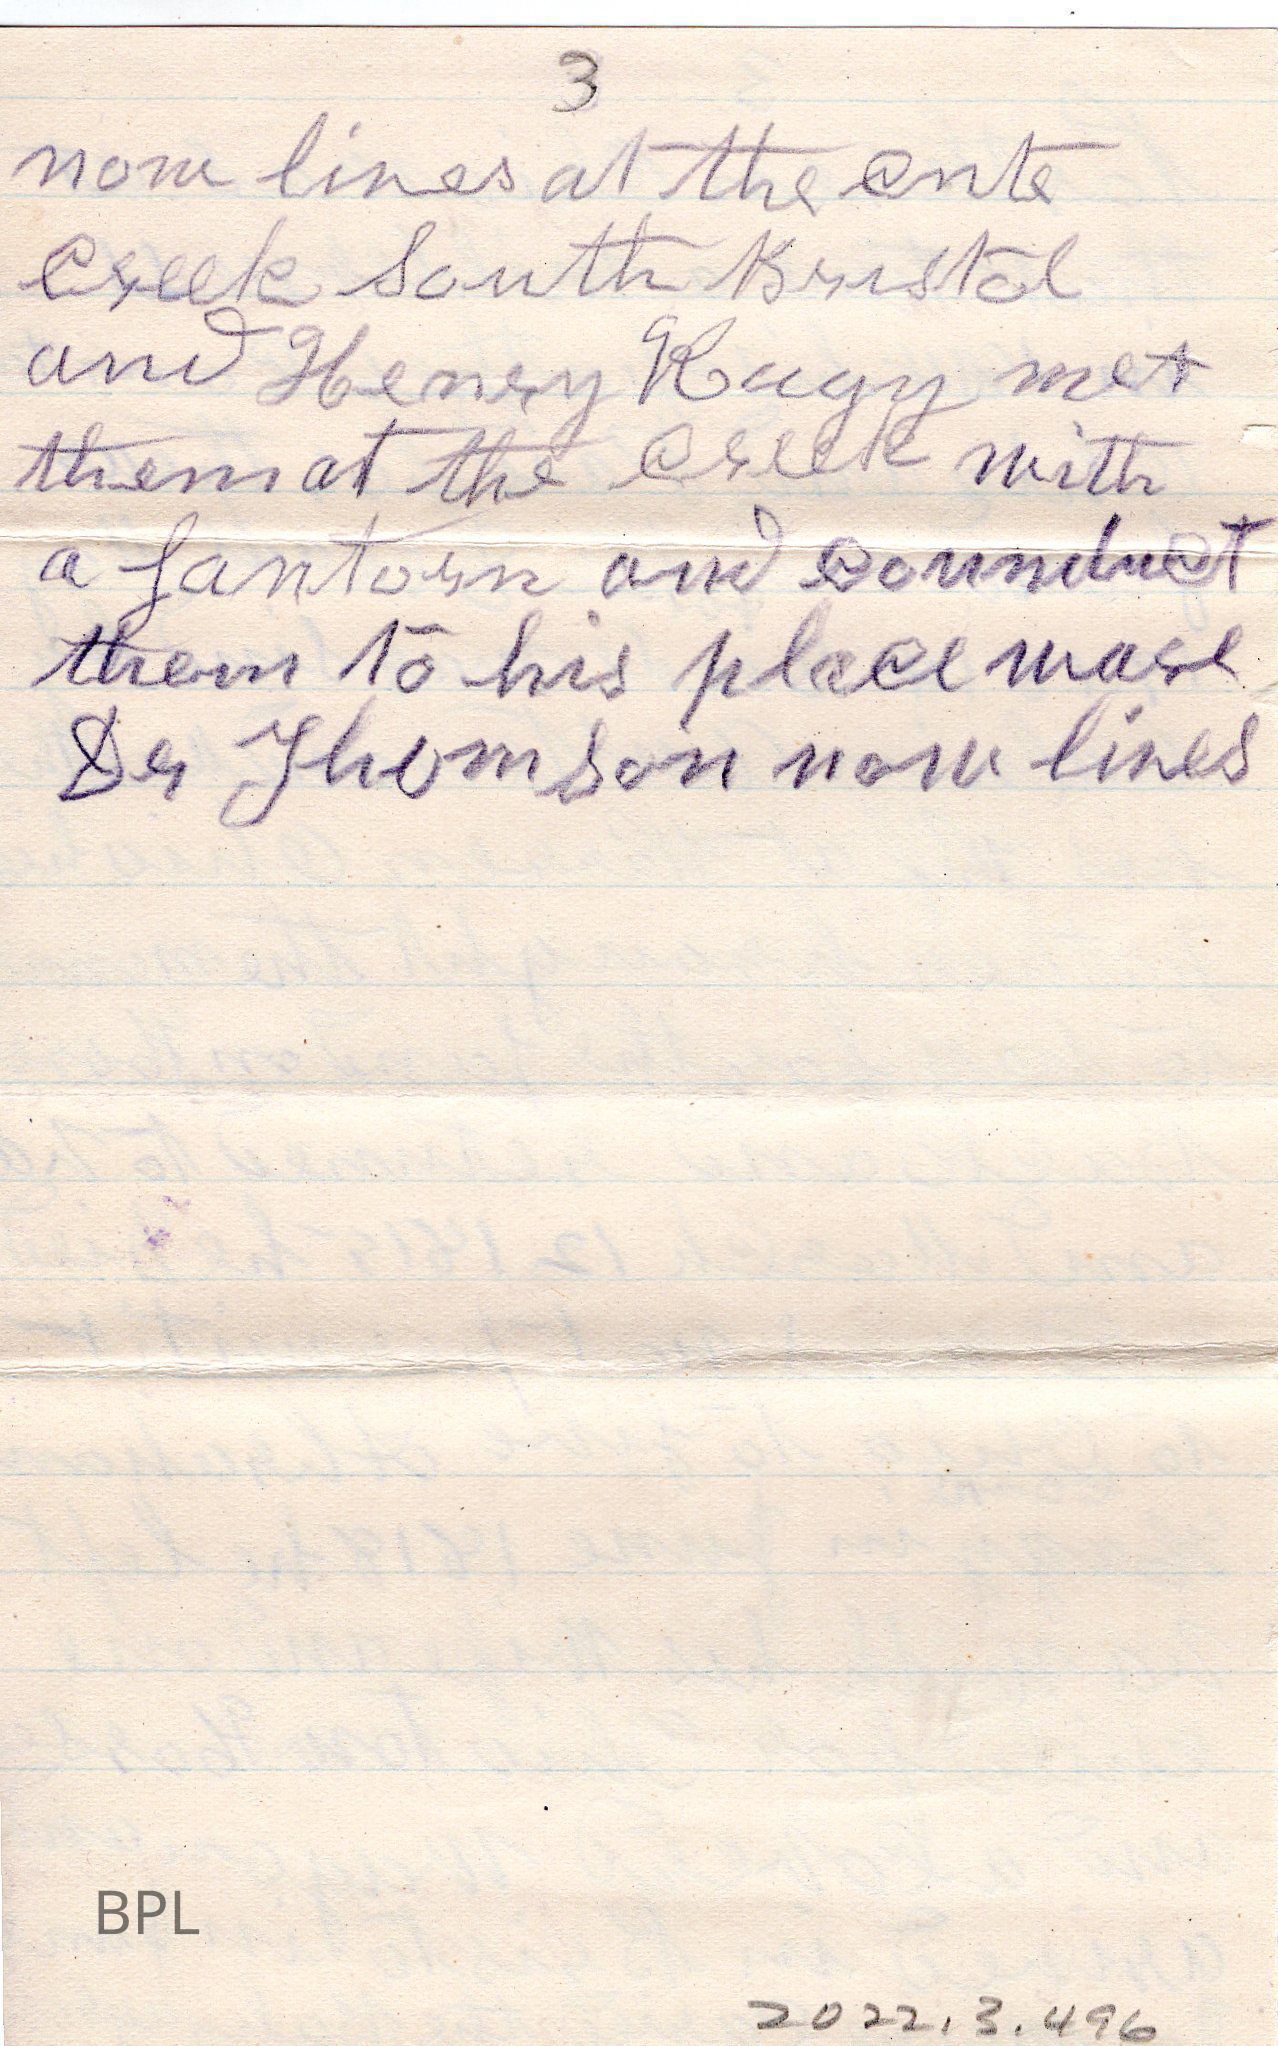 3
now lives at the ente
Creek South Bristol
and Henry Kagy met
them at the Creek with
a lantorn and counduct
them to his place ware
Dr Thomson now lives
BPL
2022.3.496